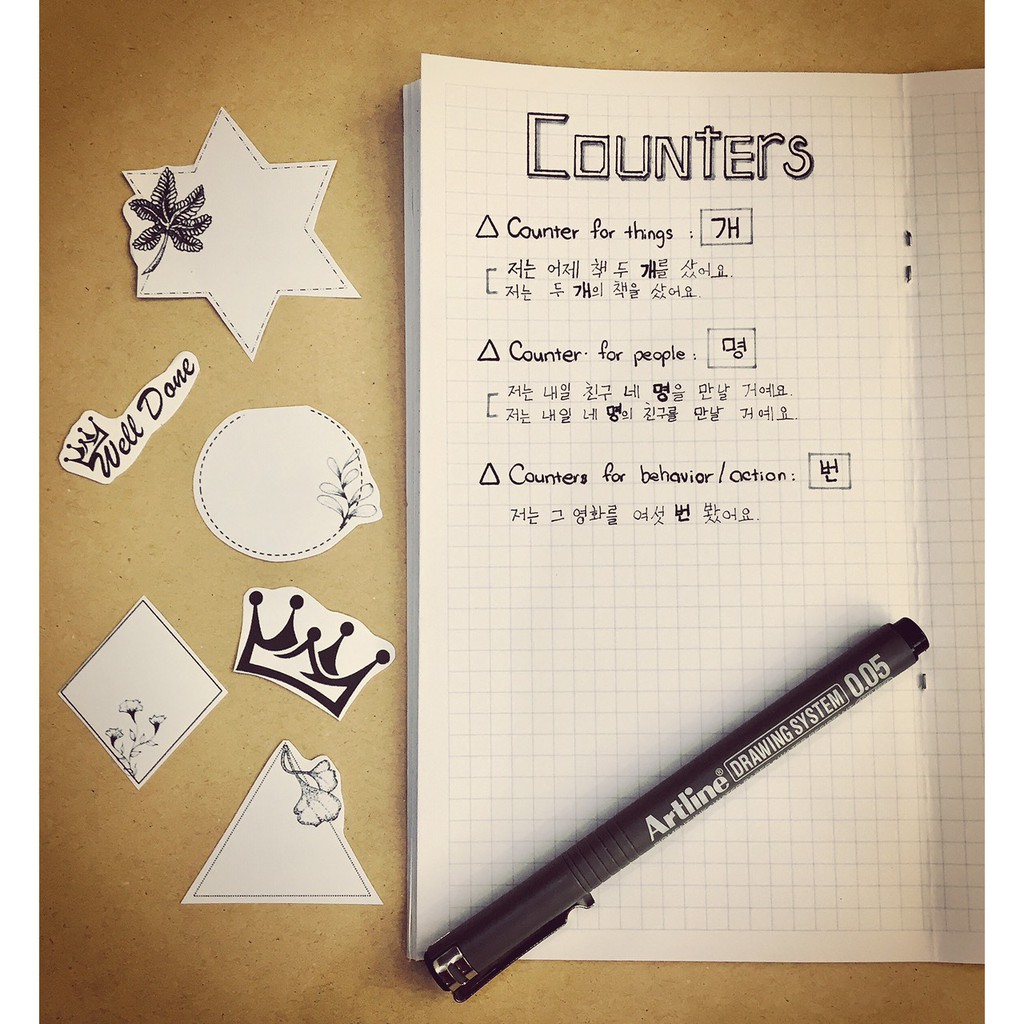 Counters
△ Counter for things : 개
저는 어제 책 두 개를 샀어요.
저는 두 개의 책을 샀어요.
△ Counter for people : 명
저는 내일 친구 네 명을 만날 거예요.
저는 내일 네 명의 친구를 만날 거예요.
△ Counters for behavior/action : 번
저는 그 영화를 여섯 번 봤어요.
Well Done
Artline® DRAWING SYSTEM 0.05